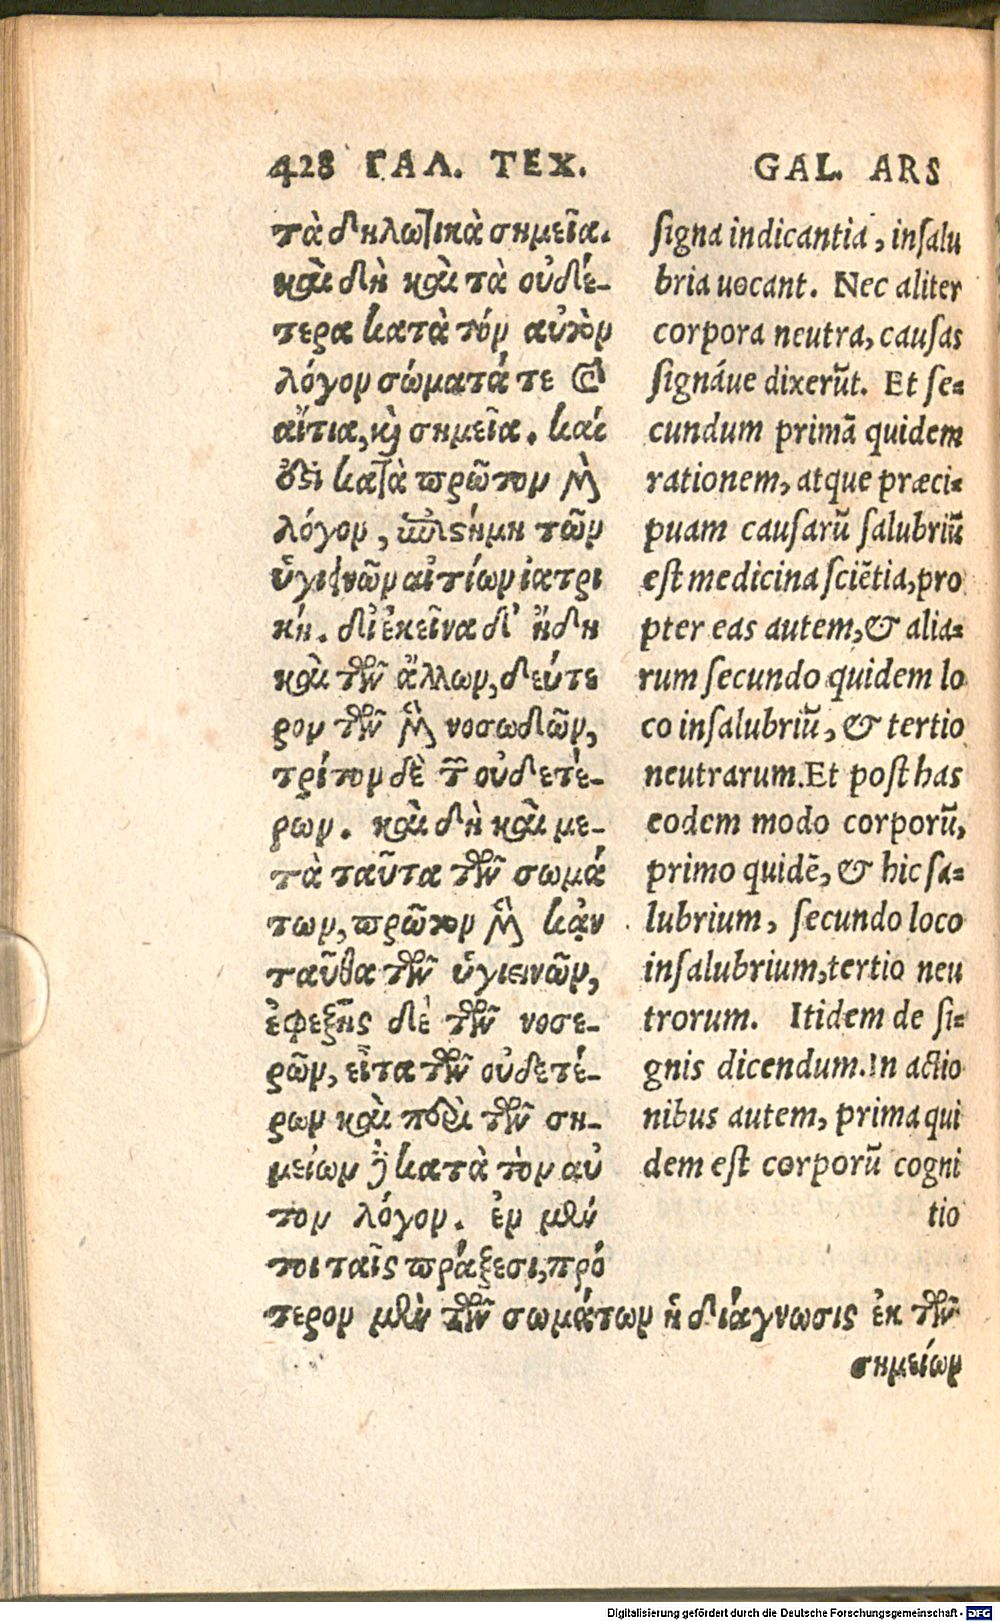 428 ΓΑΛ. ΤΕΧ.
τὰ δηλωτικὰ σημεῖα.
καὶ δὴ καὶ τὰ οὐδέ-
τερα κατὰ τὸν αὐτὸν
λόγον σώματά τε καὶ
αἴτια, καὶ σημεῖα. κἀς
δὲ κατὰ πρῶτον μὲν
λόγον, ἐπιστήμη τῶν
ὑγιεινῶν αἰτίων ἰατρι
κή. δι᾽ ἐκεῖνα δ᾽ ἤδη
καὶ τῶν ἄλλων, δεύτε
ρον τῶν μὲν νοσωδῶν,
τρίτον δὲ τῶν οὐδετέ-
ρων. καὶ δὴ καὶ με-
τὰ ταῦτα τῶν σωμά
των, πρῶτον μὲν κἀν
ταῦθα τῶν ὑγιεινῶν,
ἐφεξῆς δὲ τῶν νοσε-
ρῶν, εἶτα τῶν οὐδετέ-
ρων καὶ περὶ τῶν ση-
μείων δὲ κατὰ τὸν αὐ
τὸν λόγον. ἐν μέν
τοι ταῖς πράξεσι, πρό
τερον μὲν τῶν σωμάτων ἡ διάγνωσις ἐκ τῶν
σημείων
GAL. ARS
signa indicantia, insalu
bria uocant. Nec aliter
corpora neutra, causas
signáue dixerũt. Et se-
cundum primã quidem
rationem, atque præci-
puam causarũ salubriũ
est medicina sciẽtia, pro
pter eas autem, & alia-
rum secundo quidem lo
co insalubriũ, & tertio
neutrarum. Et post has
eodem modo corporũ,
primo quidẽ, & hic sa-
lubrium, secundo loco
insalubrium, tertio neu
trorum. Itidem de si-
gnis dicendum. In actio
nibus autem, prima qui
dem est corporũ cogni
tio
Digitalisierung gefördert durch die Deutsche Forschungsgemeinschaft - DFG